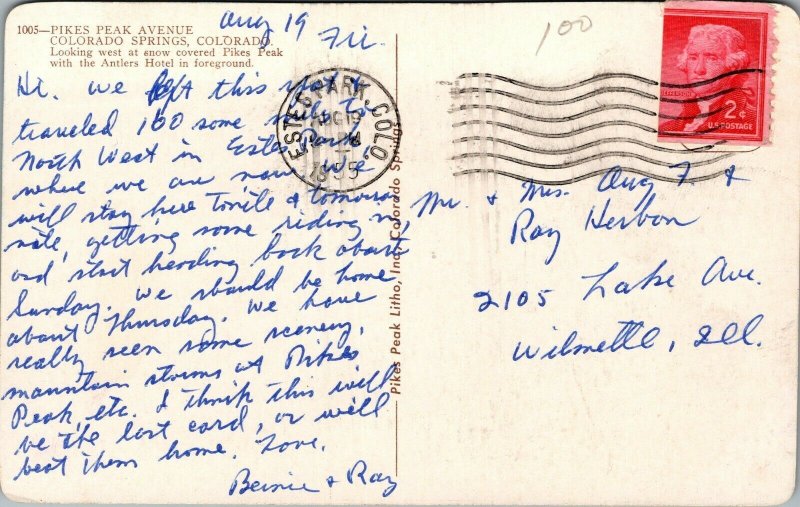 1005—PIKES PEAK AVENUE
COLORADO SPRINGS, COLORADO.
Looking west at snow covered Pikes Peak
with the Antlers Hotel in foreground.
Aug 19
Fri.
Hi. We left this
traveled 100 some to
North West in Estes Park
where we are now. We
will stay here Tonite & tomorrow
nite, getting some riding in,
and start heading back about
Sunday. We should be home
about Thursday. We have
really seen some scenery,
mountain storms at Pikes
Peak, etc. I think this will
be the last card, or we'll
beat them home. Love.
Bernie & Ray
Pikes Peak Litho, Inc. Colorado Springs
ESTES PARK, COLO.
AUG 19
PM
100
JEFFERSON
2¢
U.S. POSTAGE
Mr. & Mrs. Aug F. &
Ray Herbon
2105 Lake Ave.
Wilmette, Ill.